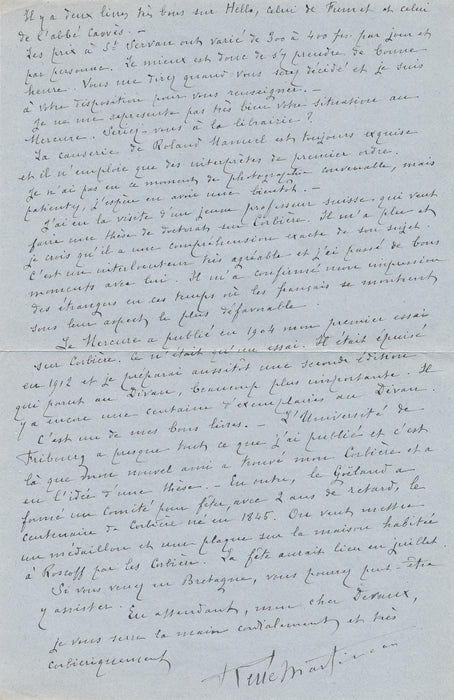 Il y a deux livres très bons sur Hello, celui de Fumet et celui
de l'abbé Cauwès. —
Les prix à St Servan ont varié de 300 à 400 frs. par jour et
par personne. Le mieux est donc de s'y prendre de bonne
heure. Vous me direz quand vous serez décidé et je suis
à votre disposition pour vous renseigner. —
Je ne me représente pas très bien votre situation au
Mercure. Serez-vous à la librairie ?
La causerie de Roland Manuel est toujours exquise
et il n'emploie que des interprètes de premier ordre.
Je n'ai pas en ce moment de photographie convenable, mais
patientez, j'espère en avoir une bientôt. —
J'ai eu la visite d'un jeune professeur suisse qui veut
faire une thèse de doctorat sur Corbière. Il m'a plu et
je crois qu'il a une compréhension exacte de son sujet.
C'est un interlocuteur très agréable et j'ai passé de bons
moments avec lui. Il m'a confirmé mon impression
des étrangers en ces temps où les français se montrent
sous leur aspect le plus défavorable.
Le Mercure a publié en 1904 mon premier essai
sur Corbière. Ce n'était qu'un essai. Il était épuisé
en 1912 et je préparai aussitôt une seconde édition
qui parut au Divan, beaucoup plus importante. Il
y a encore une centaine d'exemplaires au Divan.
C'est un de mes bons livres. — L'Université de
Fribourg a presque tout ce que j'ai publié et c'est
là que mon nouvel ami a trouvé mon Corbière et a
eu l'idée d'une thèse. — En outre, le Goéland a
formé un Comité pour fêter, avec 2 ans de retard, le
centenaire de Corbière né en 1845. On veut mettre
un médaillon et une plaque sur la maison habitée
à Roscoff par les Corbière. La fête aurait lieu en juillet
Si vous venez en Bretagne, vous pourrez peut-être
y assister.
En attendant, mon cher Devaux,
je vous serre la main cordialement et très
corbièriquement
René Martineau